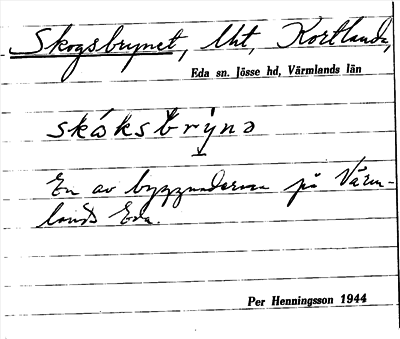 Skogsbrynet, lht, Kortlanda,
Eda sn. Jösse hd, Värmlands län
skóksbrynə
En av byggnaderna på Värm-
lands Eda.
Per Henningsson 1944